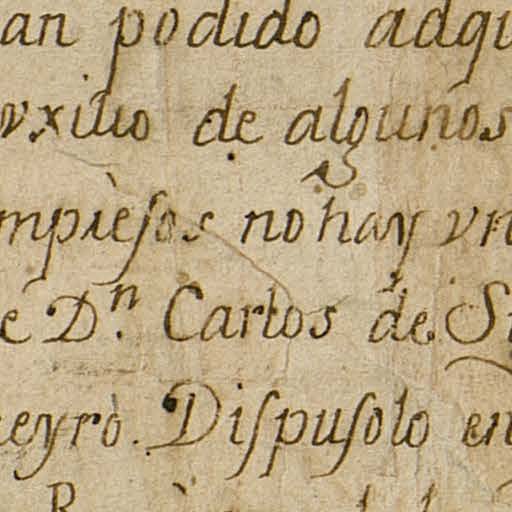 an podido adqu
vxilio de algunos
mpièsos no hay vn
e D.n Carlos de Si
neyrò. Dispusolo en